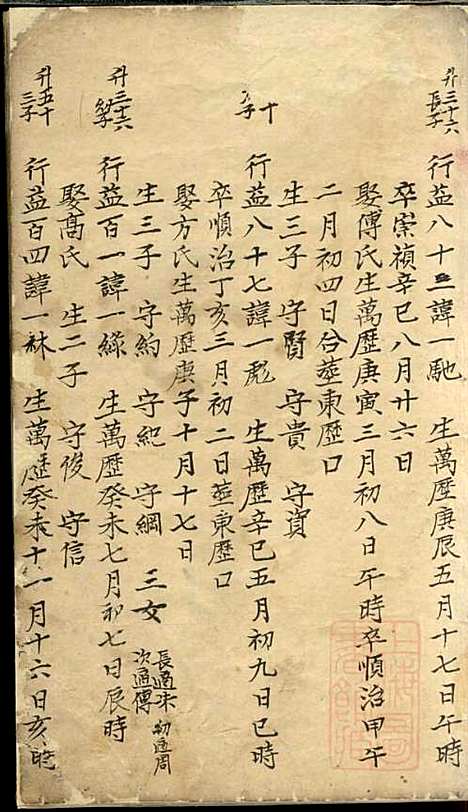 升三十六
長子
行益八十三諱一馳 生萬歷庚辰五月十七日午時
卒崇禎辛巳八月廿六日
娶傅氏生萬歷庚寅三月初八日午時卒順治甲午
二月初四日合塟東歷口
生三子 守賢 守貴 守資
十
子
行益八十七諱一彪 生萬歷辛巳五月初九日巳時
卒順治丁亥三月初二日塟東歷口
娶方氏生萬歷庚子十月十七日
生三子 守約 守紀 守綱 三女 長適 次適傅 幼適周
升三十六
行益百一諱一綠 生萬歷癸未七月初七日辰時
娶高氏 生二子 守俊 守信
升五十
三子
行益百四諱一 生萬歷癸未十一月十六日亥時